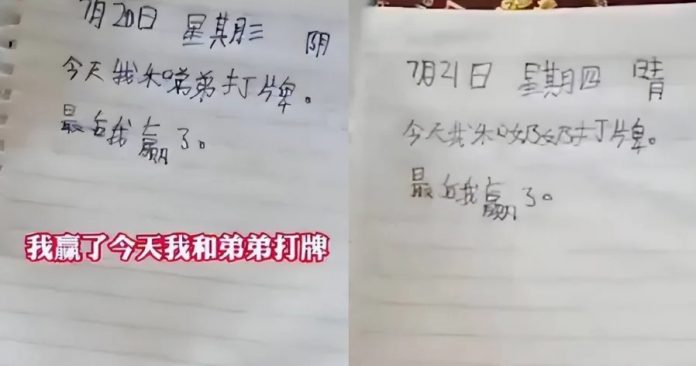 7月20日 星期三 阴
今天我和弟弟打牌。
最近我赢了。
我赢了今天我和弟弟打牌
7月21日 星期四 晴
今天我和奶奶打牌。
最近我赢了。